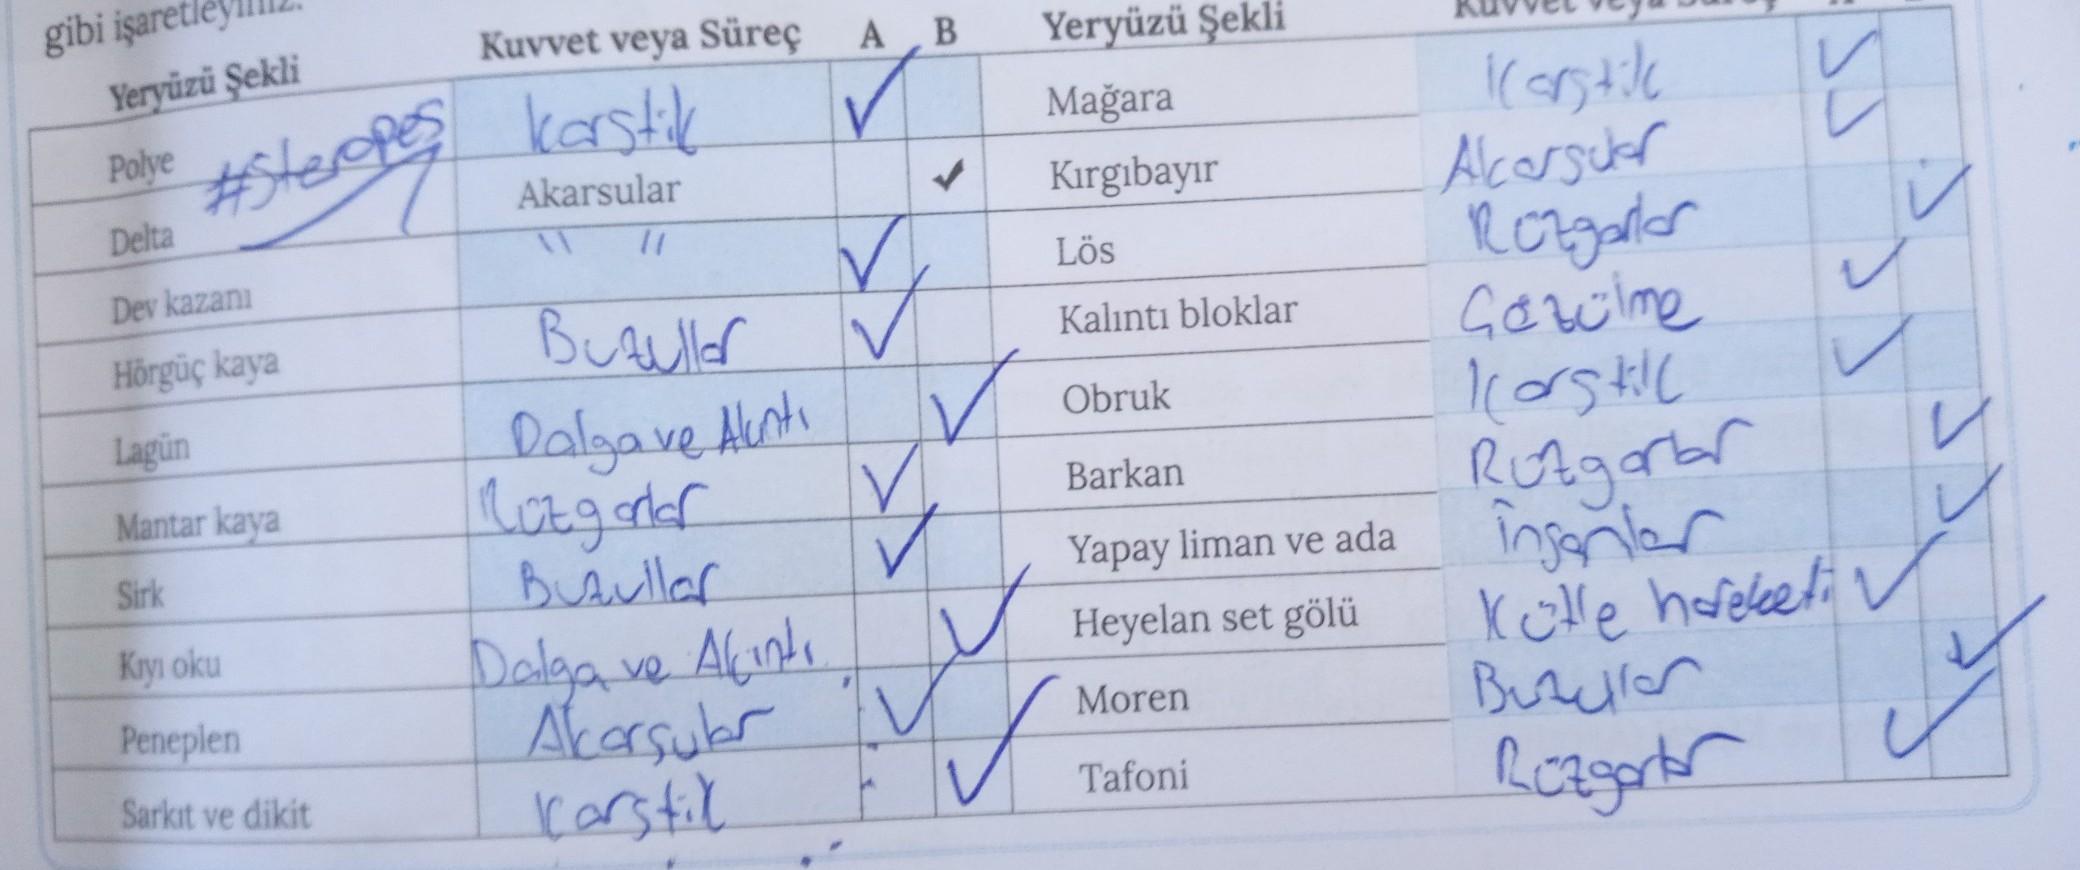 gibi işaretleyiniz.
Yeryüzü Şekli Kuvvet veya Süreç A B Yeryüzü Şekli Kuvvet veya
Polye #steropes Karstik ✓ Mağara Karstik ✓
Delta Akarsular ✓ Kırgıbayır Akarsular ✓
Dev kazanı " " ✓ Lös Rüzgarlar ✓
Hörgüç kaya Buzullar ✓ Kalıntı bloklar Çözülme ✓
Lagün Dalga ve Akıntı ✓ Obruk Karstik ✓
Mantar kaya Rüzgarlar ✓ Barkan Rüzgarlar ✓
Sirk Buzullar ✓ Yapay liman ve ada İnsanlar ✓
Kıyı oku Dalga ve Akıntı ✓ Heyelan set gölü Kütle hareketi ✓
Peneplen Akarsular ✓ Moren Buzullar ✓
Sarkıt ve dikit Karstik ✓ Tafoni Rüzgarlar ✓